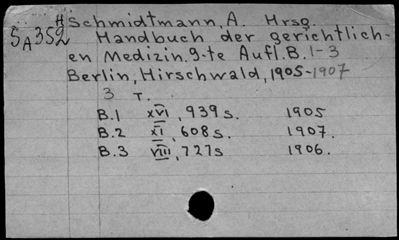 Schmidtmann, A. Hrsg.
5A352
Handbuch der gerichtlich-
en Medizin. 9-te Aufl. B. 1-3
Berlin, Hirschwald, 1905-1907
3 T.
B.1 XVI, 939 s. 1905
B.2 XI, 608 s. 1907.
B.3 VIII, 727 s 1906.